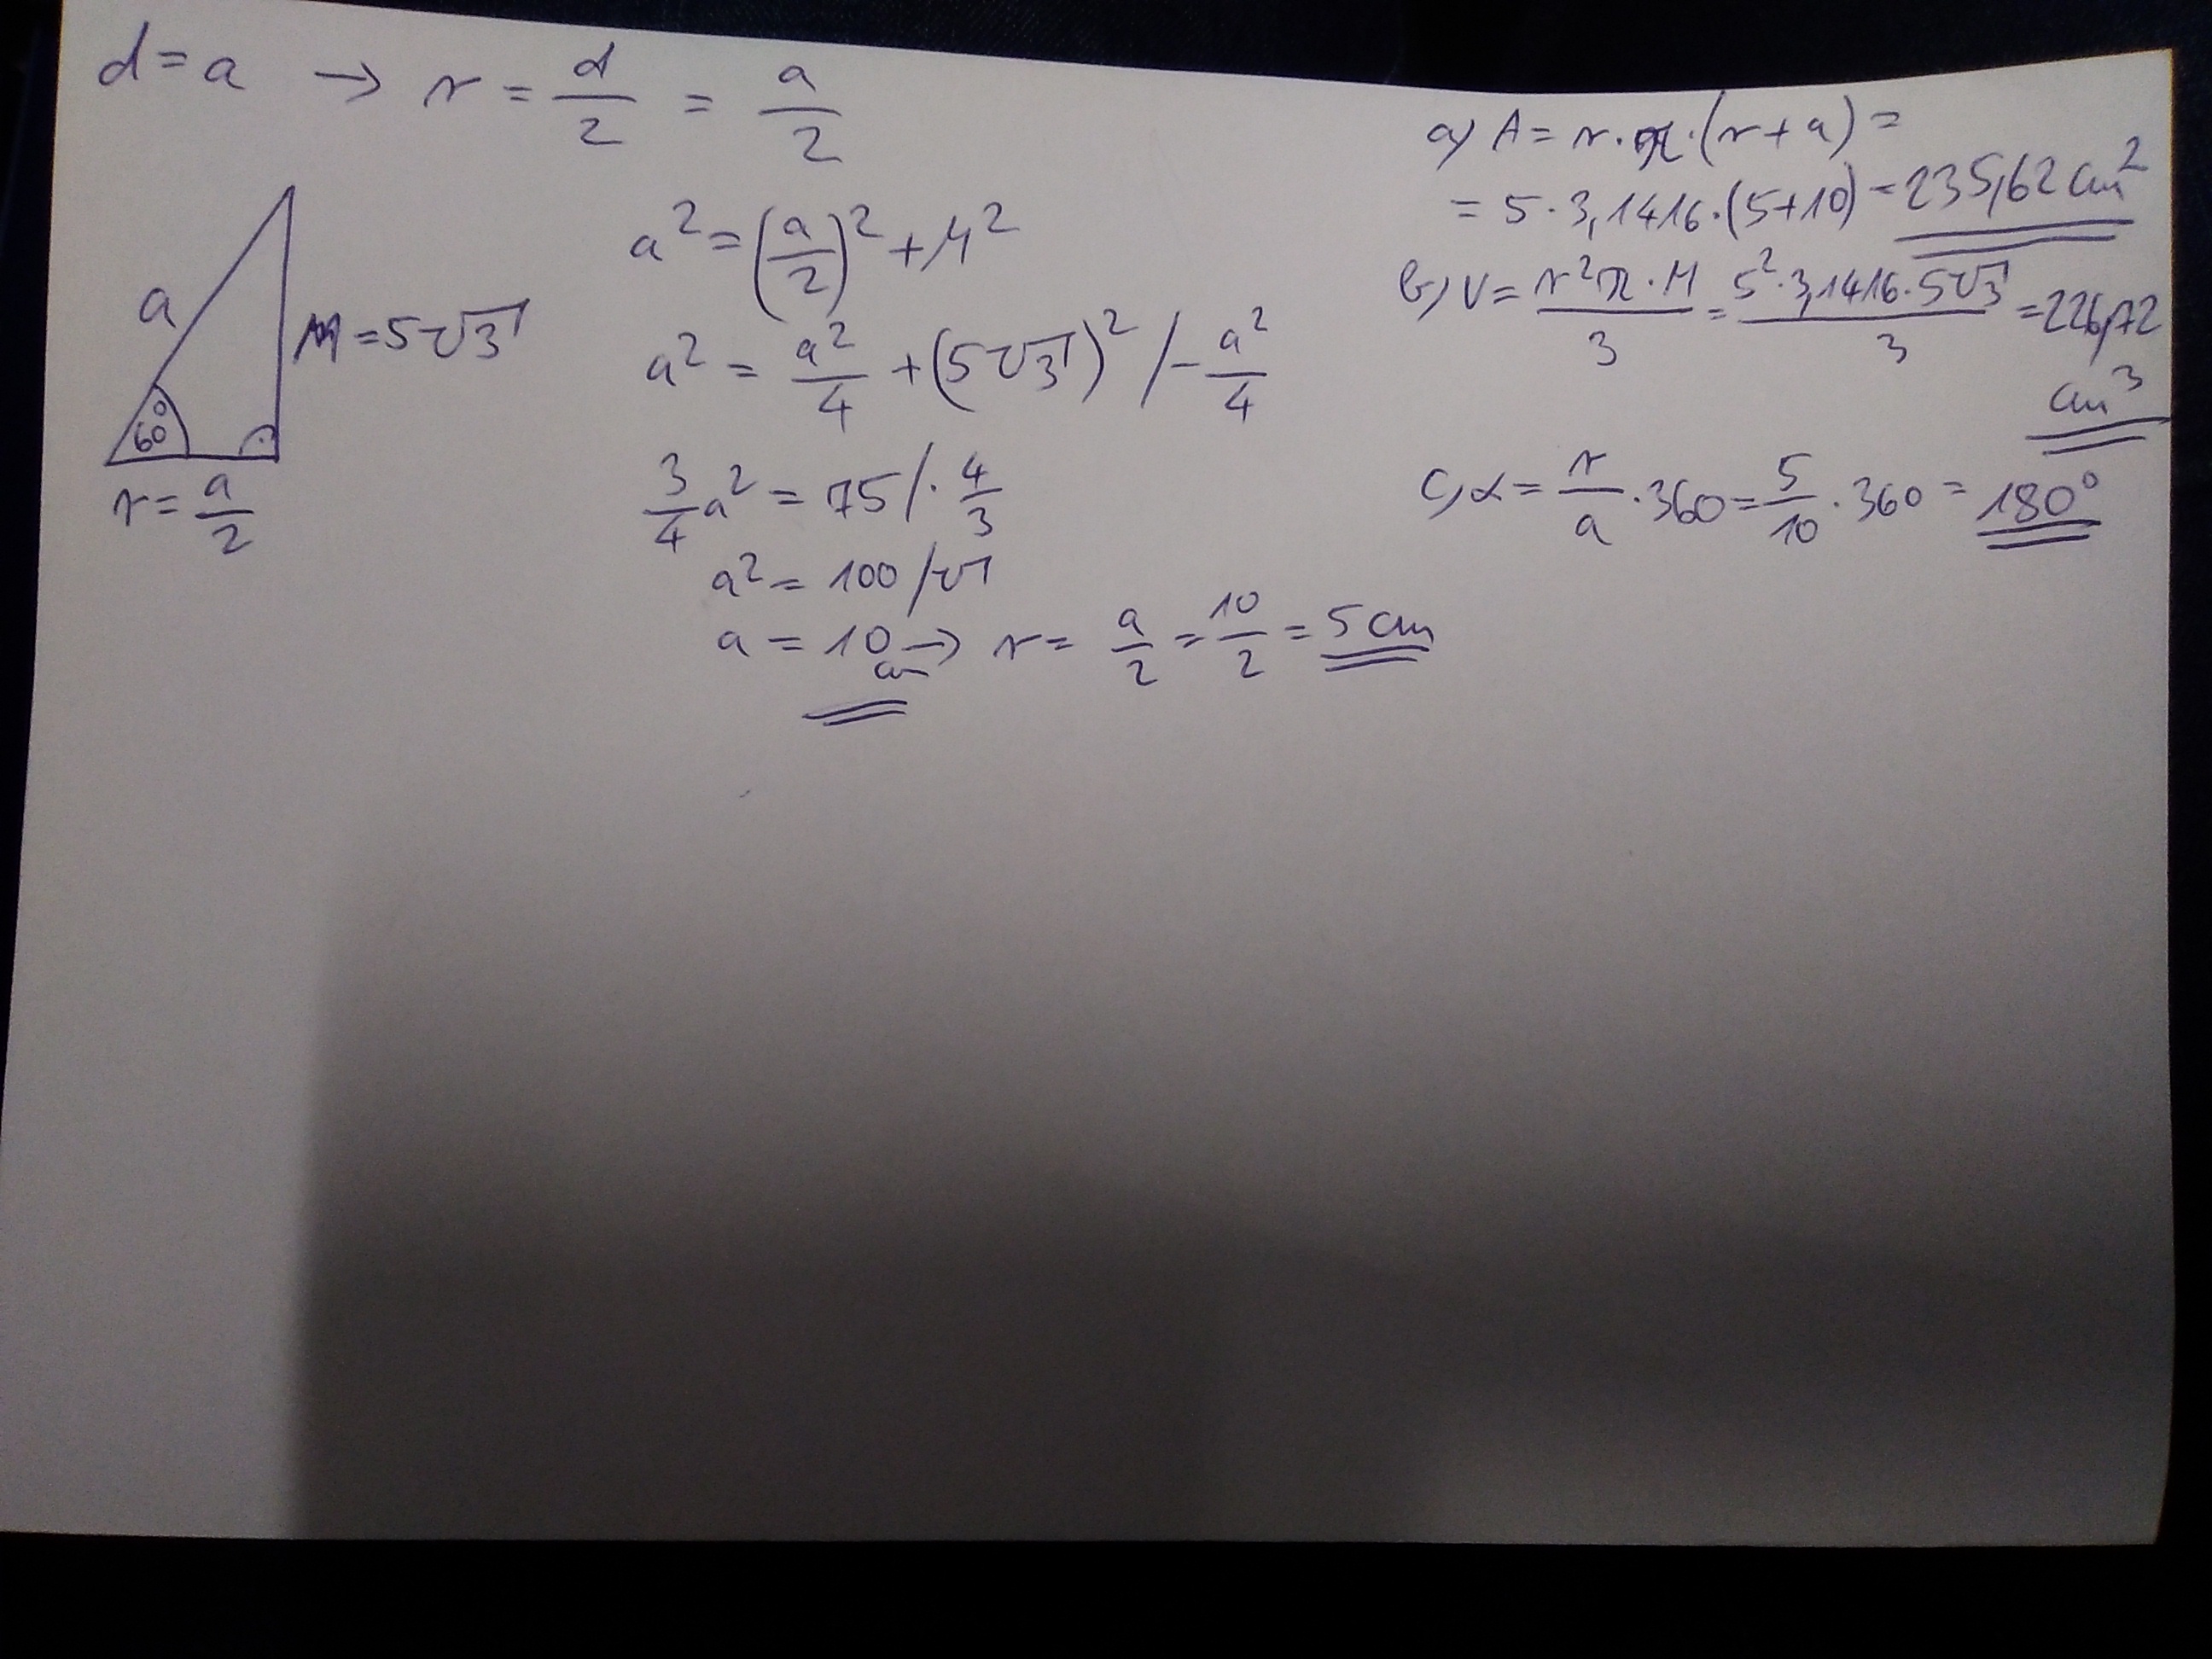 d = a → r = d/2 = a/2
a
60°
M = 5√3
r = a/2
a² = (a/2)² + M²
a² = a²/4 + (5√3)² / - a²/4
3/4 a² = 75 / · 4/3
a² = 100 / √
a = 10 cm → r = a/2 = 10/2 = 5 cm
a, A = r · π · (r + a) =
= 5 · 3,1416 · (5+10) = 235,62 cm²
b, V = r²π · M / 3 = 5² · 3,1416 · 5√3 / 3 = 226,72
cm³
c, α = r/a · 360 = 5/10 · 360 = 180°